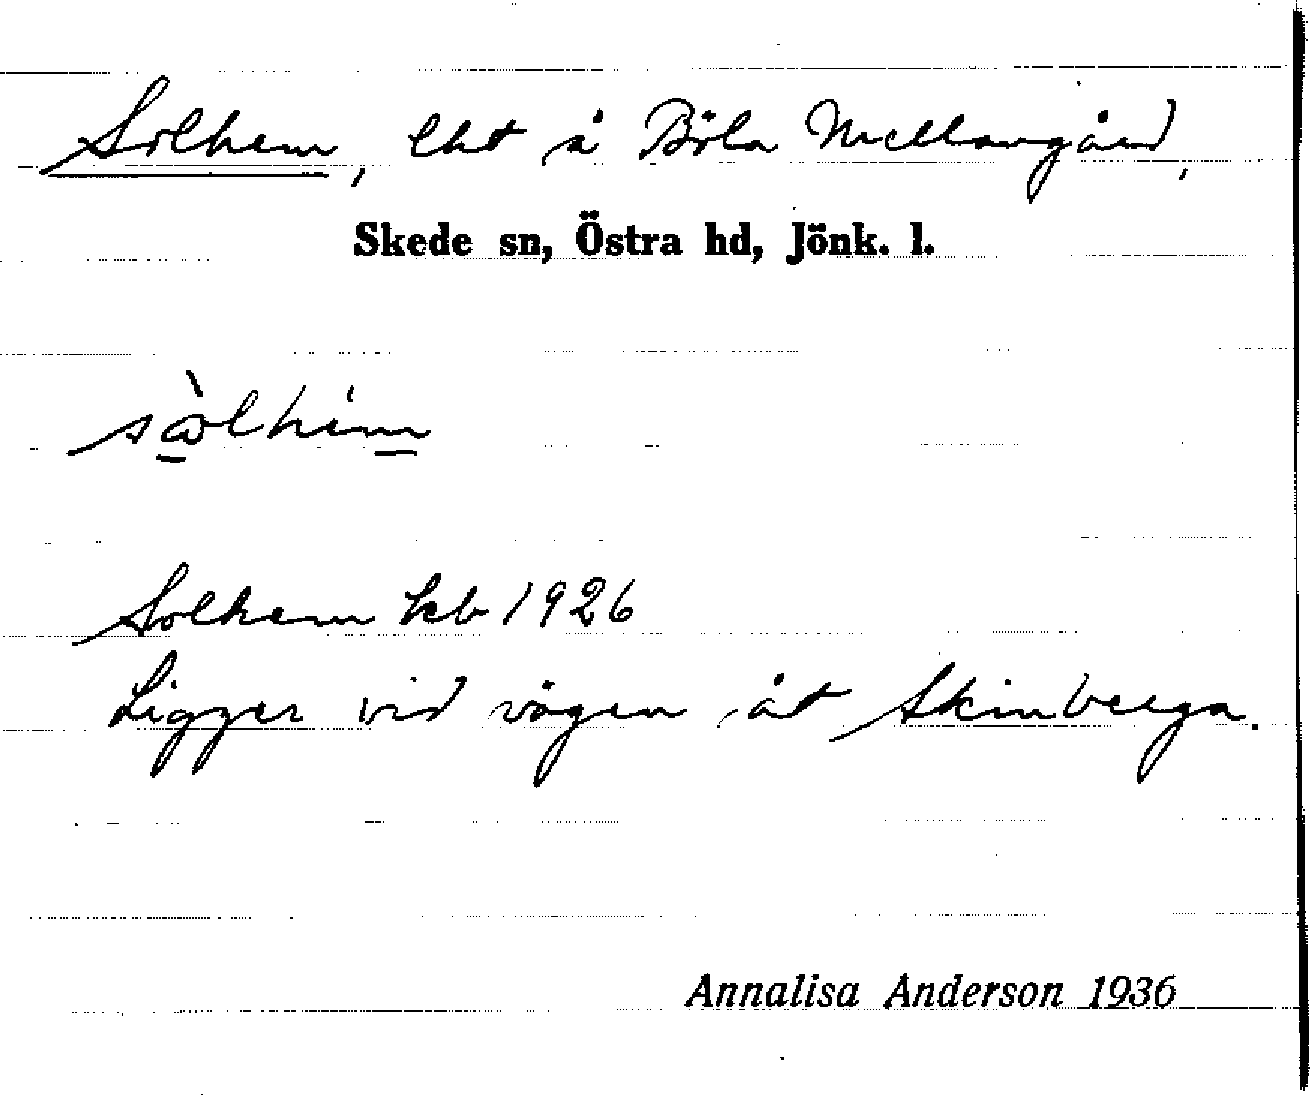 Solhem, lht å Böla Mellangård,
Skede sn, Östra hd, Jönk. l.
Solhem kb 1926
Ligger vid vägen åt Skinberga.
Annalisa Anderson 1936